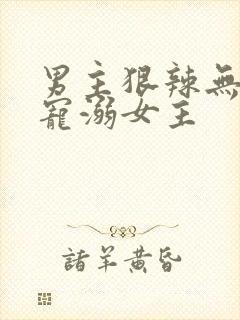 男主狠辣無
寵溺女主
諸羊黄昏